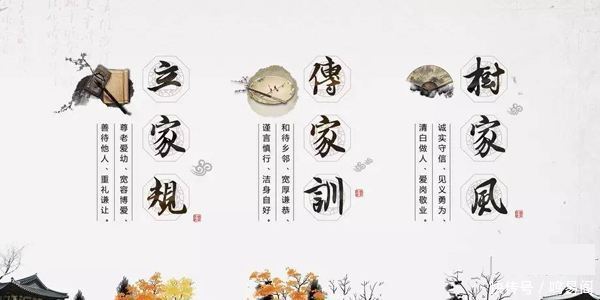 樹家風
诚实守信、见义勇为、
清白做人、爱岗敬业。
傳家訓
和待乡邻、宽厚谦恭、
谨言慎行、洁身自好。
立家規
尊老爱幼、宽容博爱、
善待他人、重礼谦让。